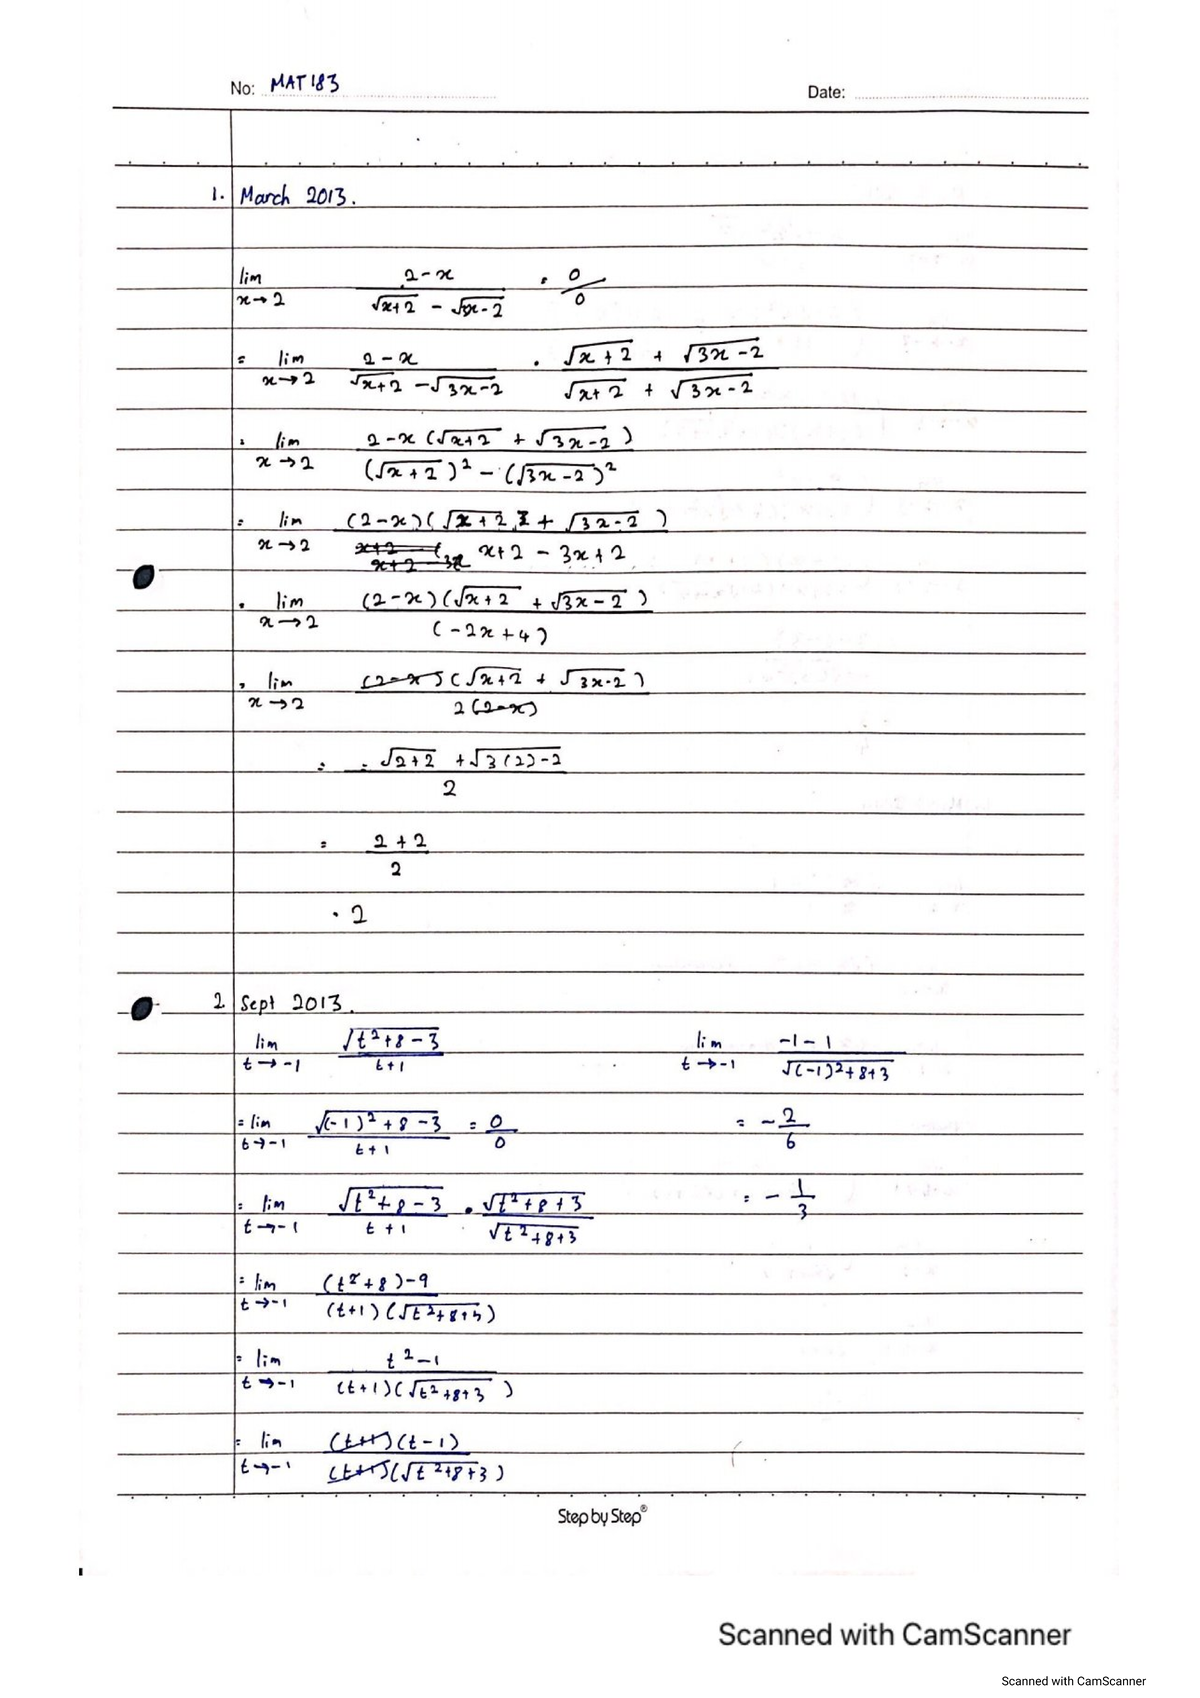 No: MAT183 Date:
1. March 2013.
lim x→2 (2-x)/(√x+2 - √x-2) = 0/0
= lim x→2 (2-x)/(√x+2 - √3x-2) . (√x+2 + √3x-2)/(√x+2 + √3x-2)
= lim x→2 2-x(√x+2 + √3x-2)/((√x+2)² - (√3x-2)²)
= lim x→2 (2-x)(√x+2 + √3x-2)/(x+2 - 3x+2)
= lim x→2 (2-x)(√x+2 + √3x-2)/(-2x+4)
= lim x→2 (2-x)(√x+2 + √3x-2)/2(2-x)
= = (√2+2 + √3(2)-2)/2
= (2+2)/2
= 2
2 Sept 2013.
lim t→-1 (√t²+8-3)/(t+1)
= lim t→-1 (√(-1)²+8-3)/(t+1) = 0/0
= lim t→-1 (√t²+8-3)/(t+1) . (√t²+8+3)/(√t²+8+3)
= lim t→-1 ((t²+8)-9)/((t+1)(√t²+8+3))
= lim t→-1 (t²-1)/((t+1)(√t²+8+3))
= lim t→-1 (t+1)(t-1)/((t+1)(√t²+8+3))
lim t→-1 (-1-1)/(√(-1)²+8+3)
= -2/6
= -1/3
Step by Step®
Scanned with CamScanner
Scanned with CamScanner